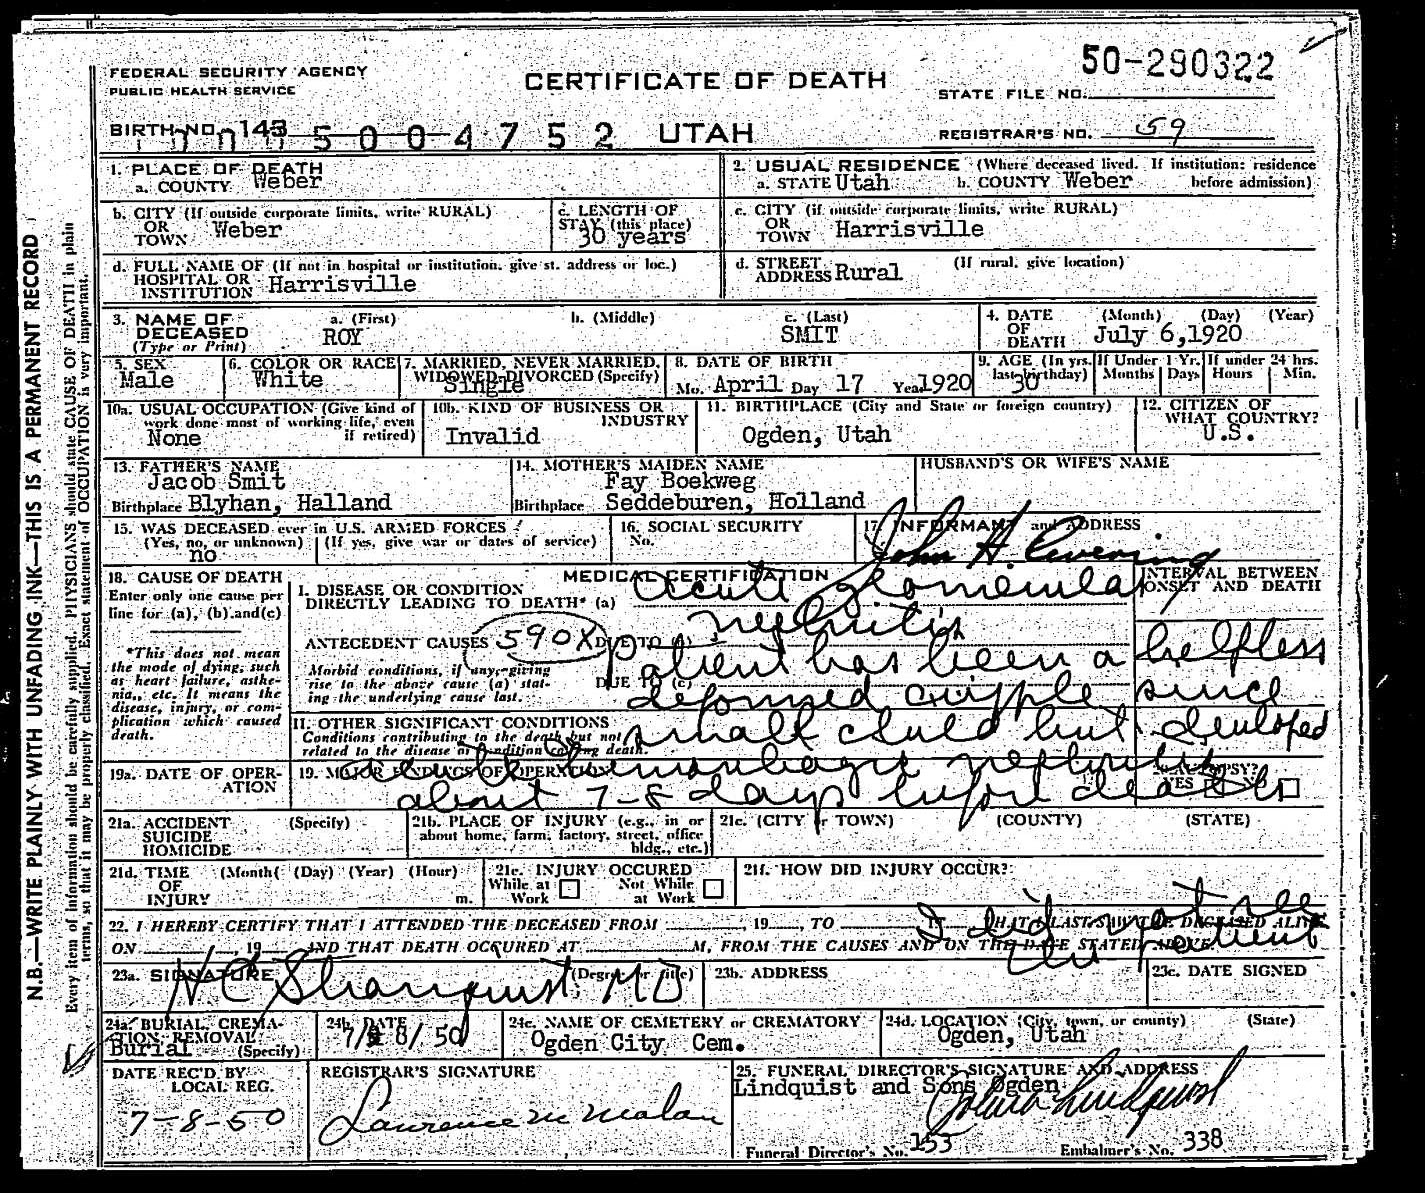 50-290322
FEDERAL SECURITY AGENCY
PUBLIC HEALTH SERVICE
CERTIFICATE OF DEATH
STATE FILE NO.
BIRTH NO. 143
5004752 UTAH
REGISTRAR'S NO. 59
N.B.—WRITE PLAINLY WITH UNFADING INK—THIS IS A PERMANENT RECORD
Every item of information should be carefully supplied. PHYSICIANS should state CAUSE OF DEATH in plain
terms, so that it may be properly classified. Exact statement of OCCUPATION is very important.
1. PLACE OF DEATH
a. COUNTY Weber
2. USUAL RESIDENCE (Where deceased lived. If institution: residence
a. STATE Utah b. COUNTY Weber before admission)
b. CITY (If outside corporate limits, write RURAL)
OR
TOWN Weber
c. LENGTH OF
STAY (this place)
30 years
c. CITY (if outside corporate limits, write RURAL)
OR
TOWN Harrisville
d. FULL NAME OF (If not in hospital or institution, give st. address or loc.)
HOSPITAL OR
INSTITUTION Harrisville
d. STREET (If rural, give location)
ADDRESS Rural
3. NAME OF a. (First) b. (Middle) c. (Last)
DECEASED ROY SMIT
(Type or Print)
4. DATE (Month) (Day) (Year)
OF
DEATH July 6,1920
5. SEX
Male
6. COLOR OR RACE
White
7. MARRIED, NEVER MARRIED,
WIDOWED DIVORCED (Specify)
Single
8. DATE OF BIRTH
Mo. April Day 17 Year 1920
9. AGE (In yrs. last birthday) If Under 1 Yr. If under 24 hrs.
30 Months Days Hours Min.
10a. USUAL OCCUPATION (Give kind of
work done most of working life, even
if retired)
None
10b. KIND OF BUSINESS OR
INDUSTRY
Invalid
11. BIRTHPLACE (City and State or foreign country)
Ogden, Utah
12. CITIZEN OF
WHAT COUNTRY?
U.S.
13. FATHER'S NAME
Jacob Smit
Birthplace Blyhan, Halland
14. MOTHER'S MAIDEN NAME
Fay Boekweg
Birthplace Seddeburen, Holland
HUSBAND'S OR WIFE'S NAME
15. WAS DECEASED ever in U.S. ARMED FORCES
(Yes, no, or unknown) (If yes, give war or dates of service)
no
16. SOCIAL SECURITY
No.
17. INFORMANT and ADDRESS
John H.
18. CAUSE OF DEATH
Enter only one cause per
line for (a), (b) and (c)
*This does not mean
the mode of dying, such
as heart failure, asthe-
nia, etc. It means the
disease, injury, or com-
plication which caused
death.
MEDICAL CERTIFICATION
I. DISEASE OR CONDITION
DIRECTLY LEADING TO DEATH* (a)
Acute glomerular
nephritis
INTERVAL BETWEEN
ONSET AND DEATH
ANTECEDENT CAUSES 590X DUE TO (b)
Morbid conditions, if any, giving
rise to the above cause (a) stat-
ing the underlying cause last.
DUE TO (c)
Patient has been a helpless
deformed cripple since
small child but developed
acute hemorrhagic nephritis
about 7-8 days before death
II. OTHER SIGNIFICANT CONDITIONS
Conditions contributing to the death but not
related to the disease or condition causing death.
19a. DATE OF OPER-
ATION
19. MAJOR FINDINGS OF OPERATION
AUTOPSY?
YES
21a. ACCIDENT (Specify)
SUICIDE
HOMICIDE
21b. PLACE OF INJURY (e.g., in or
about home, farm, factory, street, office
bldg., etc.)
21c. (CITY or TOWN) (COUNTY) (STATE)
21d. TIME (Month) (Day) (Year) (Hour)
OF
INJURY m.
21e. INJURY OCCURED
While at Work Not While at Work
21f. HOW DID INJURY OCCUR?
22. I HEREBY CERTIFY THAT I ATTENDED THE DECEASED FROM , 19 , TO THAT I LAST SAW THE DECEASED ALIVE
ON 19 AND THAT DEATH OCCURED AT M., FROM THE CAUSES AND ON THE DATE STATED ABOVE
I did not see
the patient
23a. SIGNATURE (Degree or title)
H C Stranquist MD
23b. ADDRESS
23c. DATE SIGNED
24a. BURIAL, CREMA-
TION, REMOVAL
Burial (Specify)
24b. DATE
7/ 8/ 50
24c. NAME OF CEMETERY or CREMATORY
Ogden City Cem.
24d. LOCATION (City, town, or county) (State)
Ogden, Utah
DATE REC'D BY
LOCAL REG.
7-8-50
REGISTRAR'S SIGNATURE
Lawrence M Malan
25. FUNERAL DIRECTOR'S SIGNATURE AND ADDRESS
Lindquist and Sons Ogden
Lindquist
Funeral Director's No. 153 Embalmer's No. 338